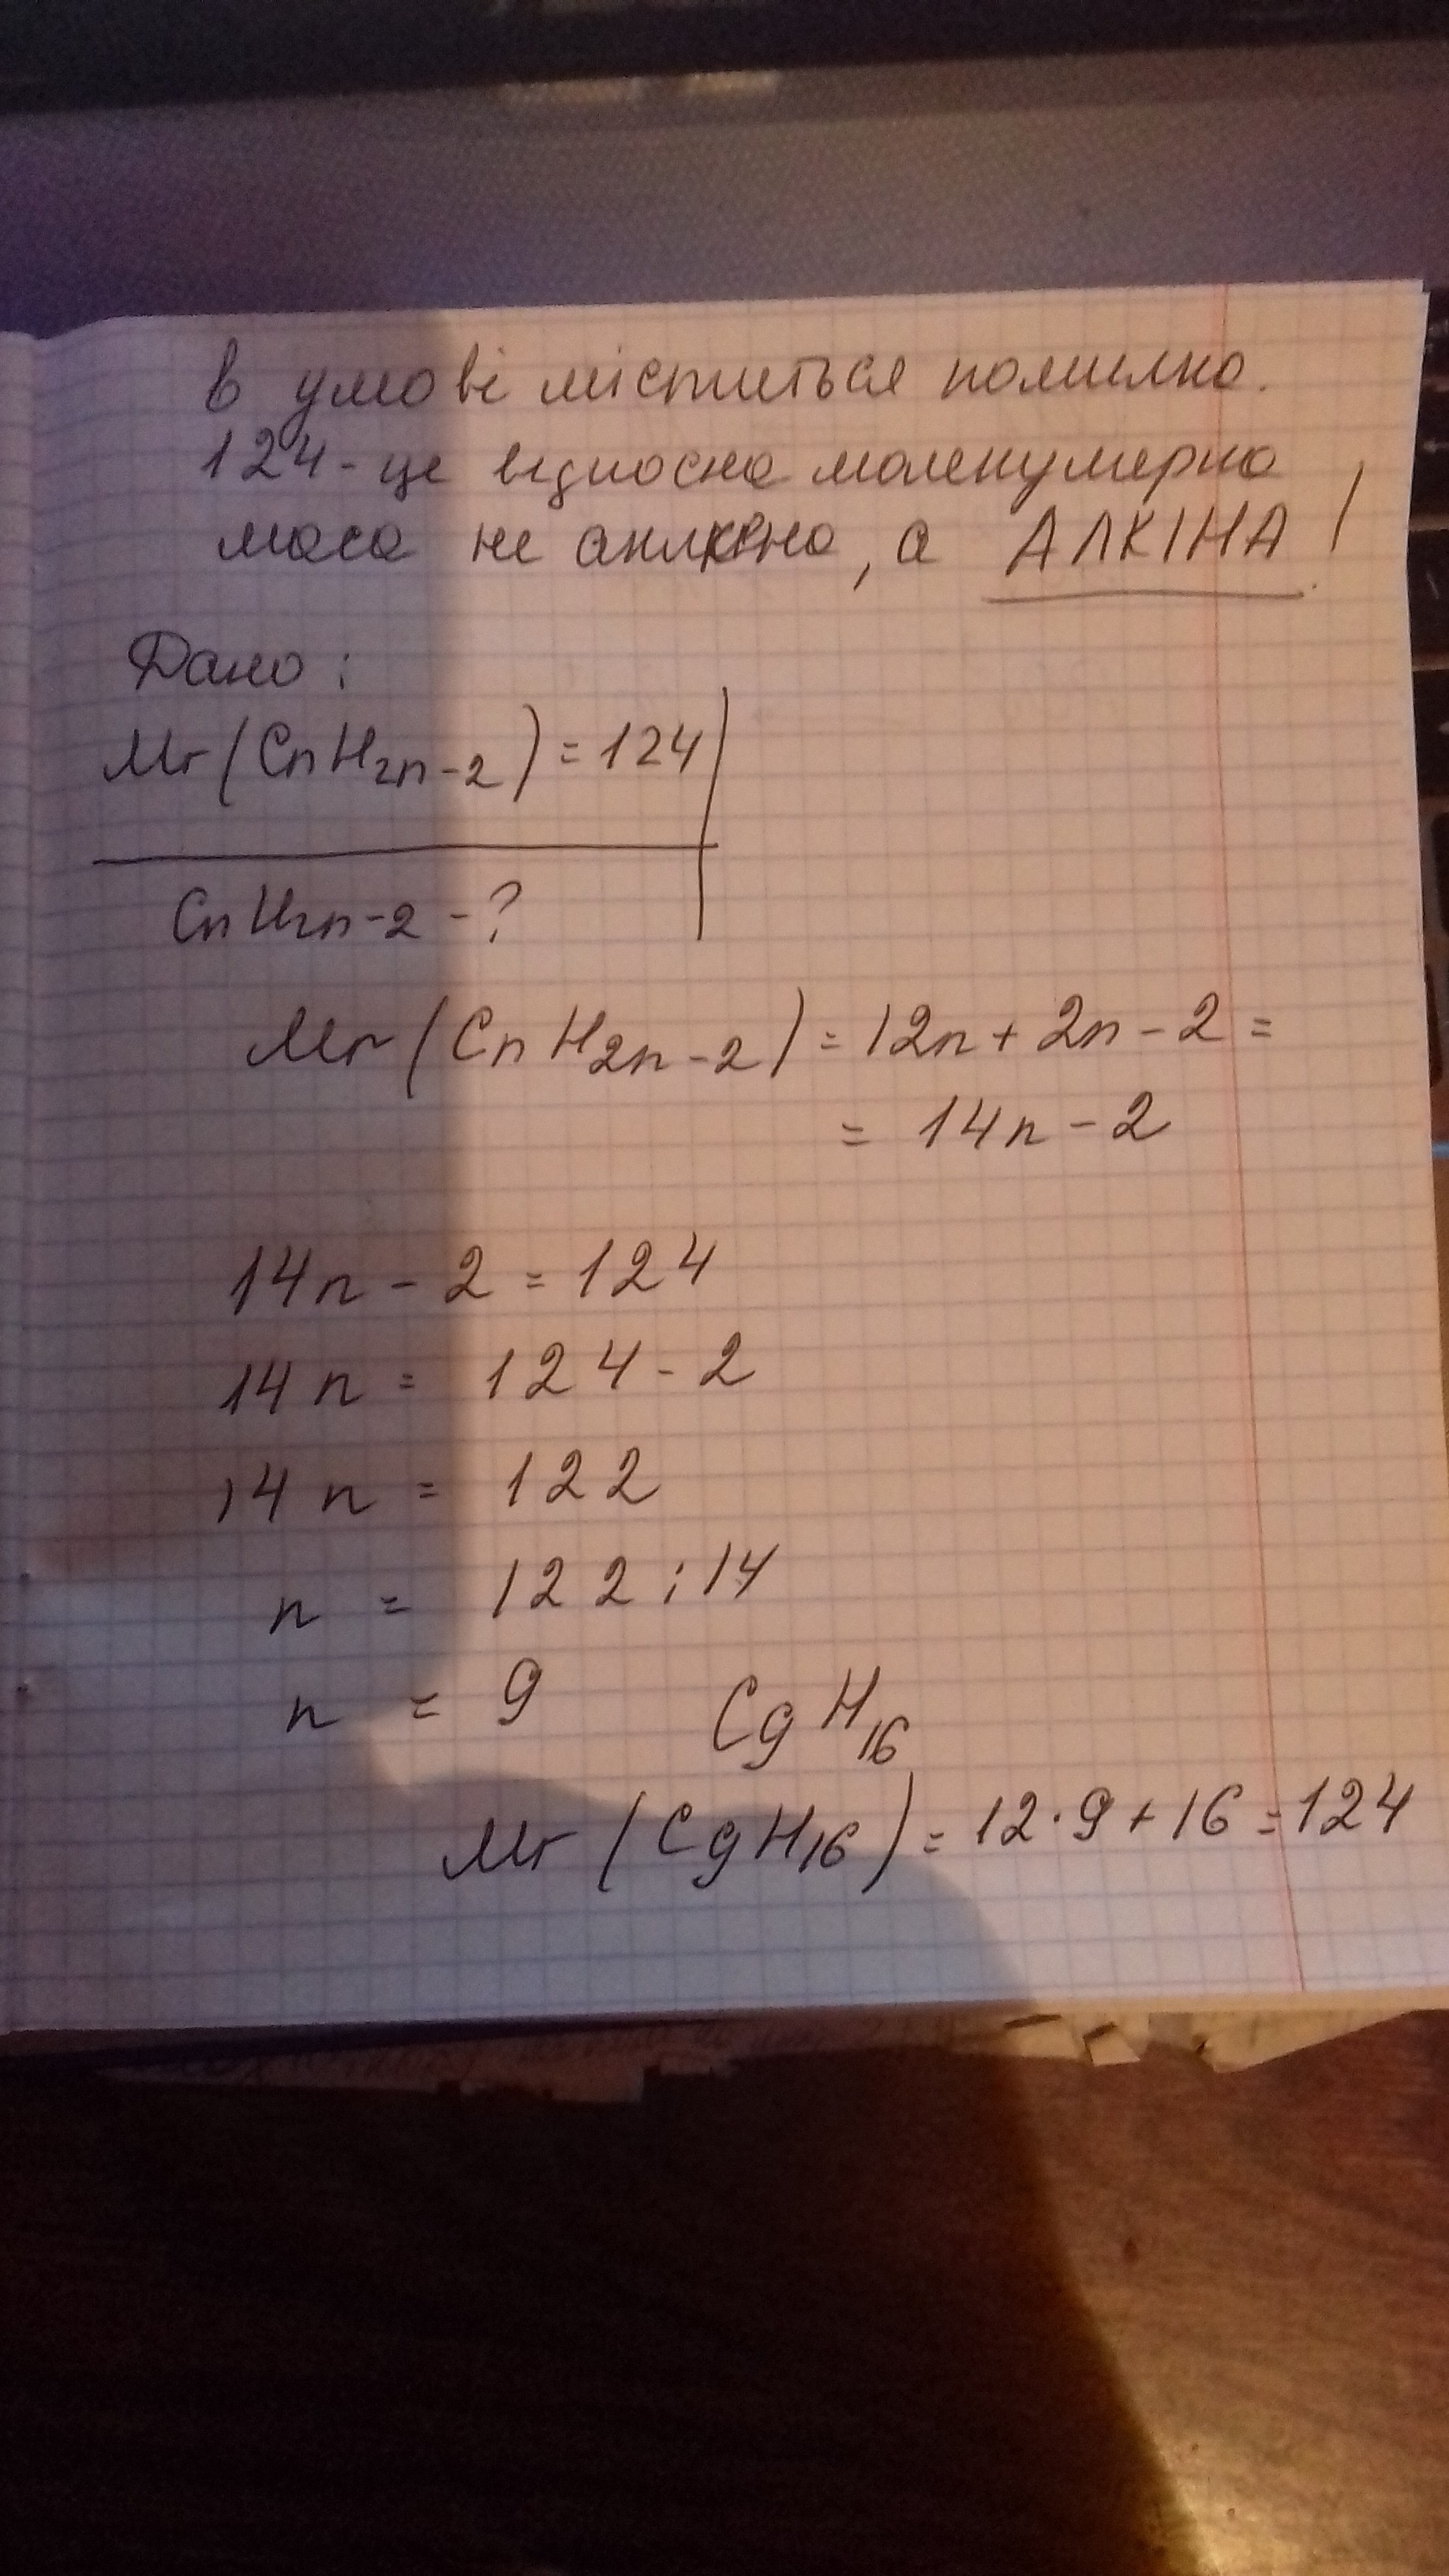 в умові міститься помилка.
124 - це відносна молекулярна
маса не алкена, а АЛКІНА!
Дано:
Mr(CnH2n-2) = 124
CnH2n-2 - ?
Mr(CnH2n-2) = 12n + 2n - 2 =
= 14n - 2
14n - 2 = 124
14n = 124 - 2
14n = 122
n = 122 : 14
n = 9 C9H16
Mr(C9H16) = 12·9 + 16 = 124